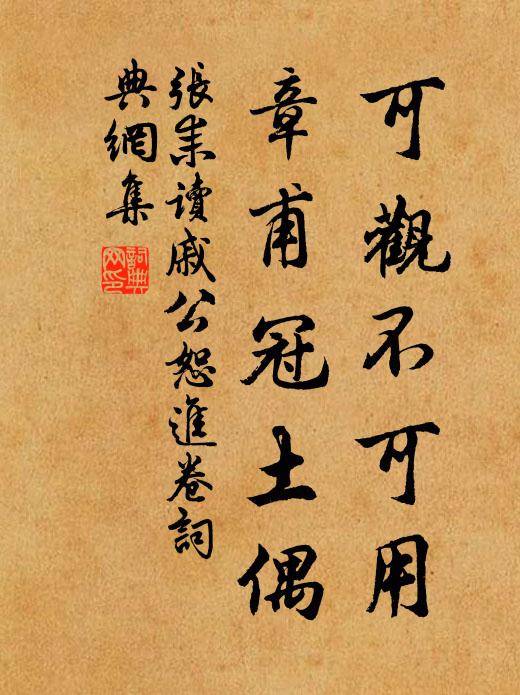 可觀不可用
章甫冠土偶
張耒讀戚公恕進卷詞
典網集
詞典
网印